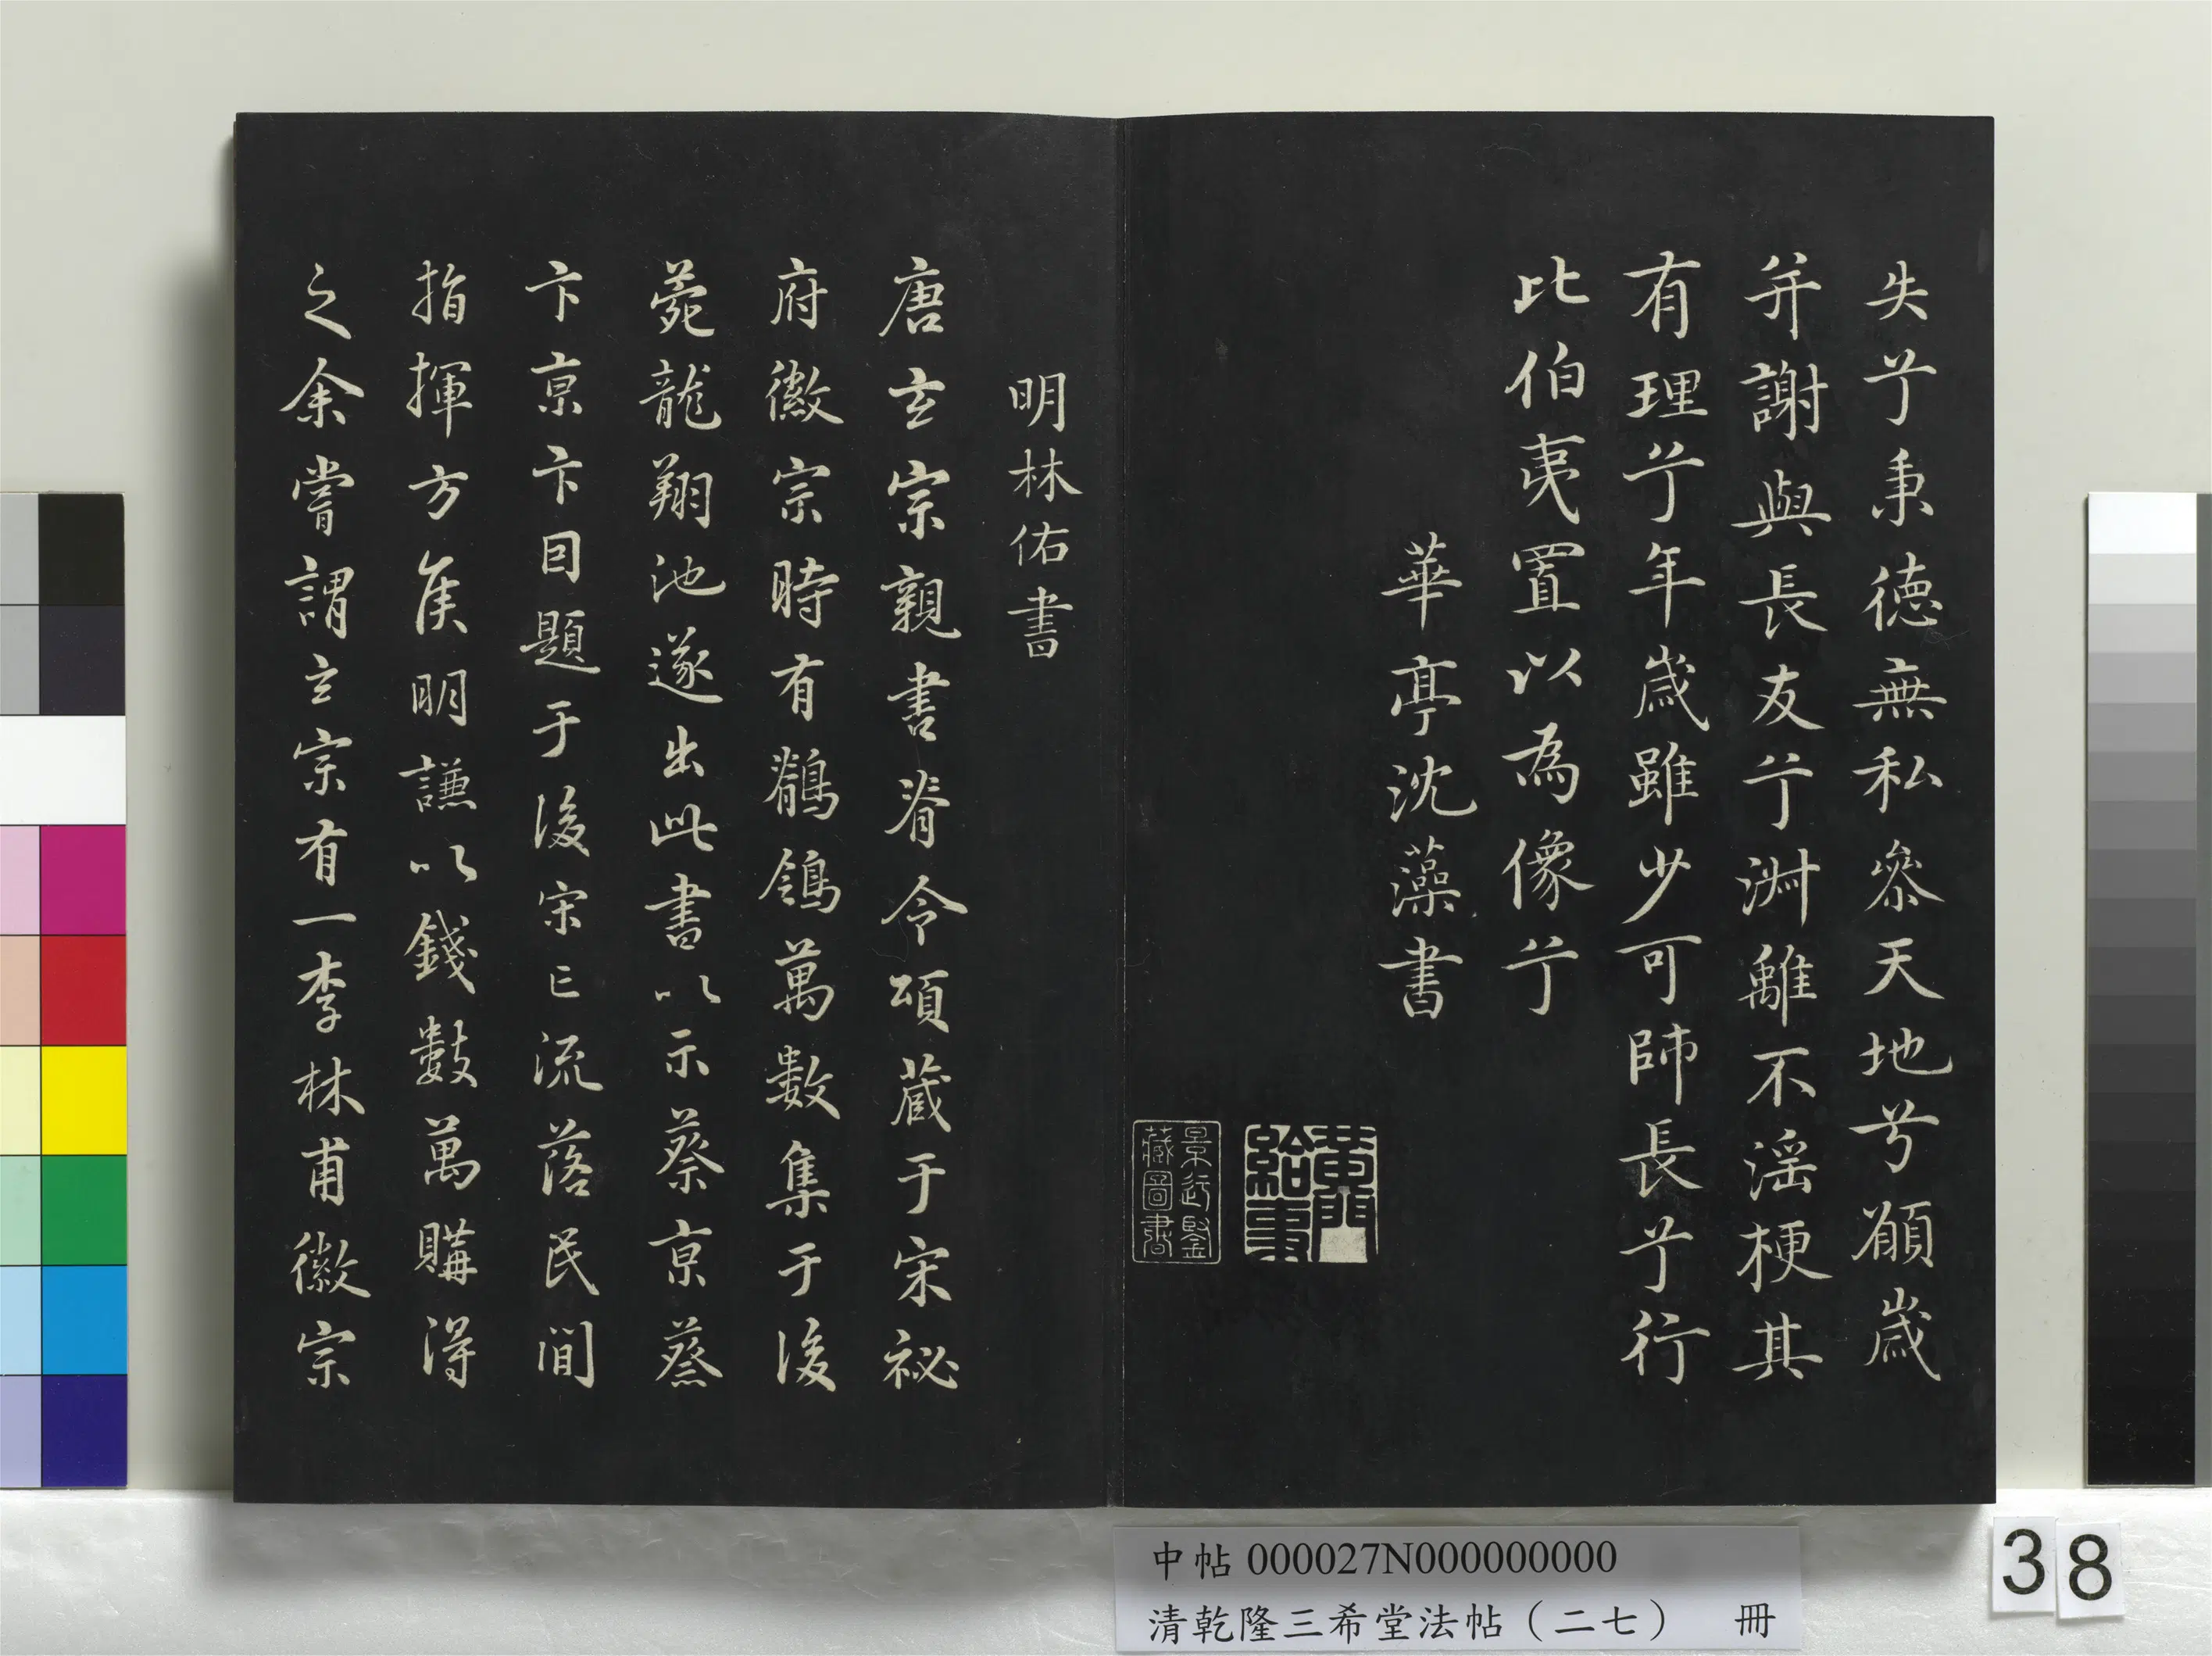 失兮秉德無私參天地兮願歲
并謝與長友兮淑離不淫梗其
有理兮年歲雖少可師長兮行
比伯夷置以為像兮
華亭沈藻書
黃門給事
景行堅藏圖書
明林佑書
唐玄宗親書脊令頌藏于宋祕
府徽宗時有鶺鴒萬數集于後
苑龍翔池遂出此書以示蔡京蔡
京卞京卞因題于後宋亡流落民間
指揮方侯明謙以錢數萬購得
之余嘗謂玄宗有一李林甫徽宗
中帖 000027N000000000
清乾隆三希堂法帖（二七） 冊
38